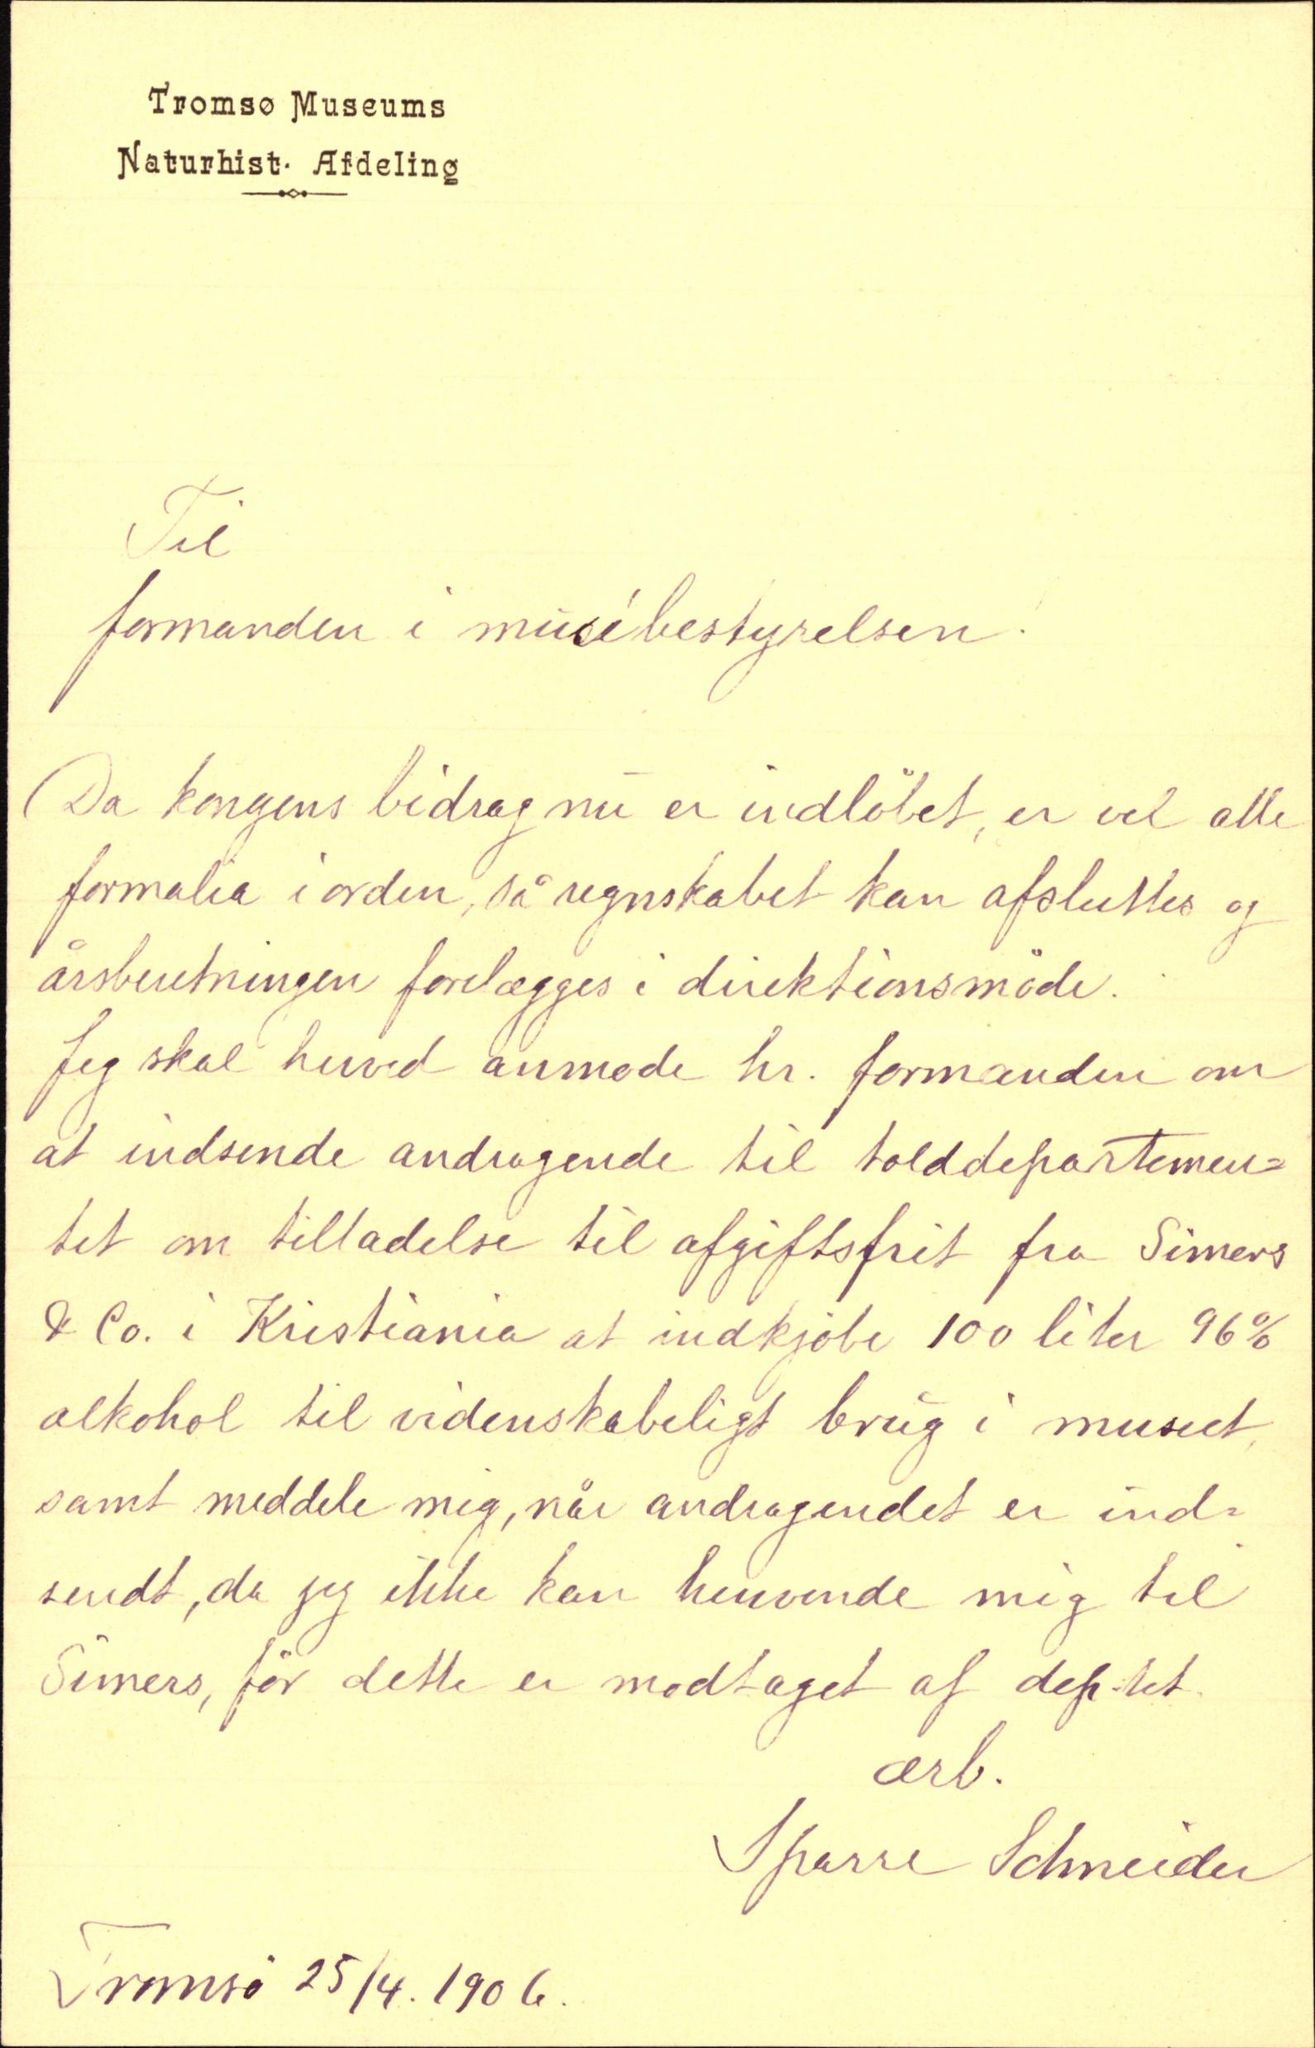 Tromsø Museums
Naturhist. Afdeling
Til
formanden i musébestyrelsen.
Da kongens bidrag nu er indlöbet, er vel alle
formalia i orden, så regnskabet kan afsluttes og
årsberetningen forelægges i direktionsmöde.
Jeg skal herved anmode hr. formanden om
at indsende andragende til tolddepartemen=
tet om tilladelse til afgiftsfrit fra Simers
& Co. i Kristiania at indkjöbe 100 liter 96%
alkohol til videnskabeligt brug i museet,
samt meddele mig, når andragendet er ind=
sendt, da jeg ikke kan henvende mig til
Simers, för dette er modtaget af dep-tet.
ærb.
Sparre Schneider
Tromsö 25/4. 1906.